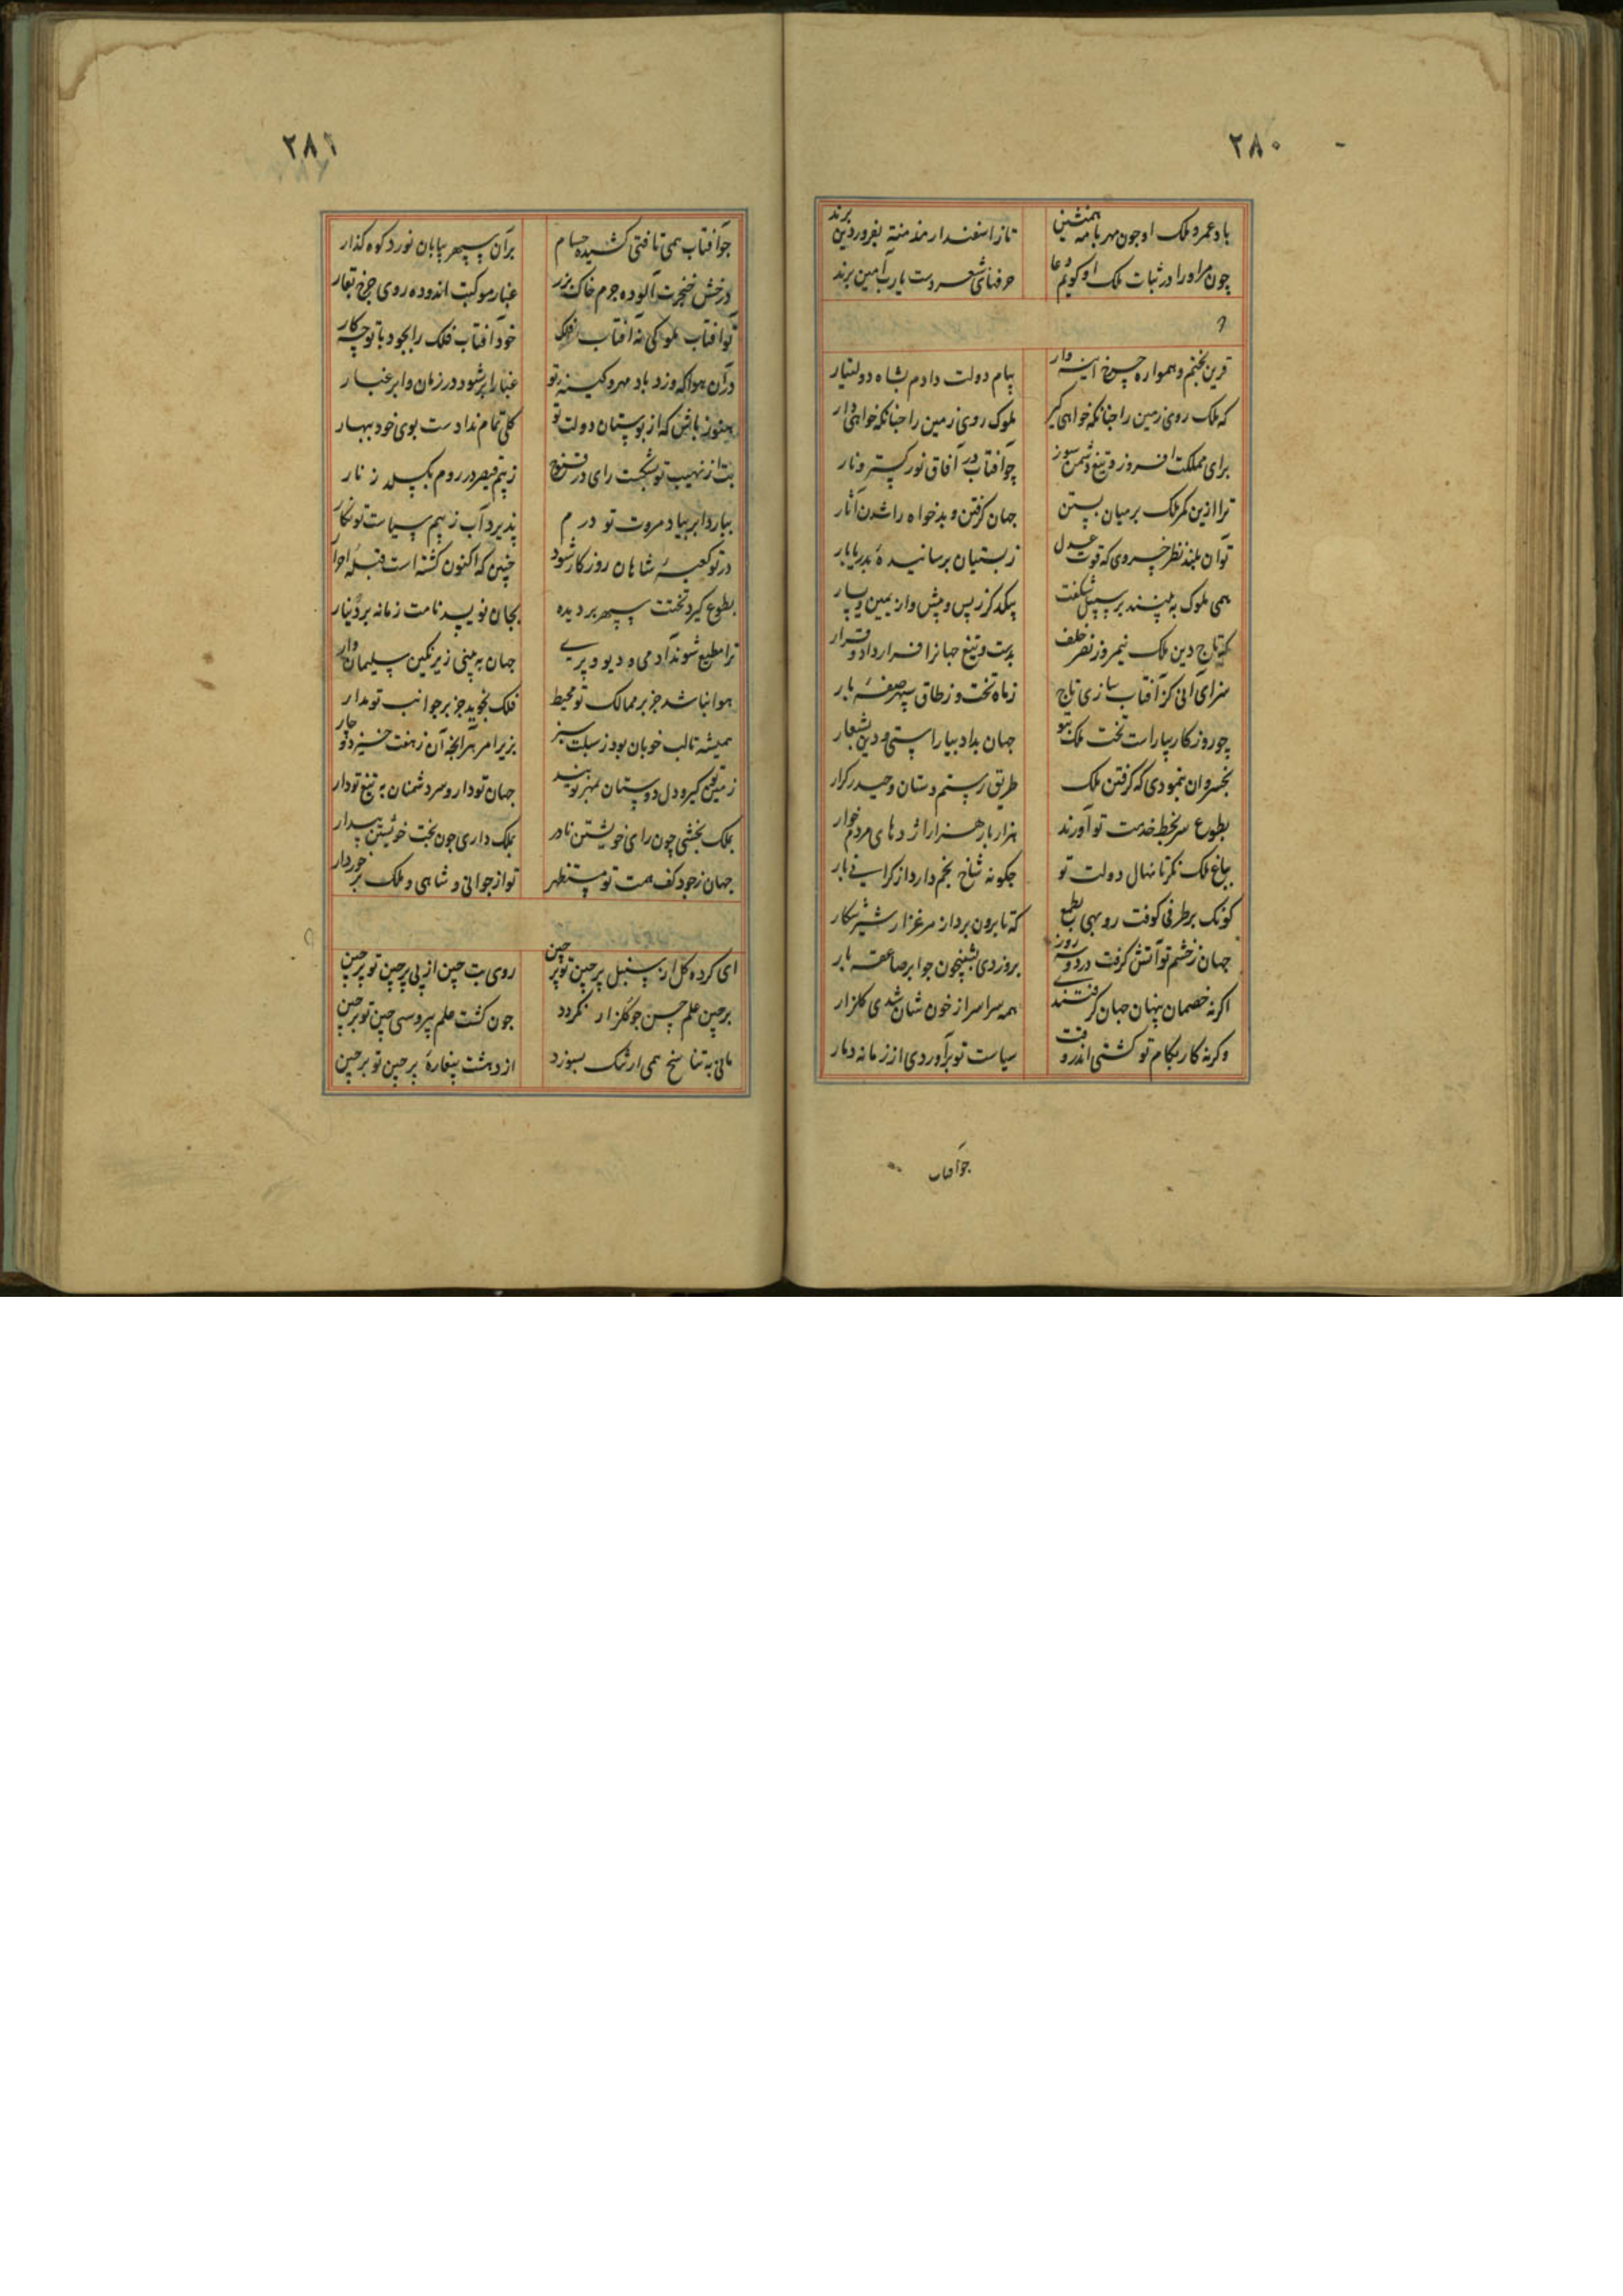 ۲۸۰
باد عمر و ملک او چون مهر با مه همنشین
تاز اسفندار مذ منته بفروردین برند
چون مر او را در ثبات ملک او گویم دعا
حرفهای شعر دست یارب آمین برند
قرین بختم و همواره چرخ آینه وار
پیام دولت دادم بشاه دولتیار
که ملک روی زمین را چنانکه خواهی گیر
ملوک روی زمین را چنانکه خواهی دار
برای مملکت افروز و تیغ دشمن سوز
چو آفتاب در آفاق نور گستر و نار
ترا ازین کمر ملک بر میان بستن
جهان گرفتن و بدخواه را شدن آثار
توآن بلند نظر خسروی که قوت عدل
ز بستیان برسانیده بدریابار
همی ملوک به پسندبر سپیل شکفت
بیکدگر ز پس و پیش واز یمین و یسار
که تاج دین ملک نیمروز نصر خلف
بدست و تیغ جهانرا قرار داد و قرار
سزای آنی کز آفتاب سازی تاج
ز ماه تخت و ز طاق سپهر صفهٔ بار
چو روزگار بیاراست تخت ملک بتو
جهان بداد بیاراستی و دین بشعار
بخسروان بنمودی که گرفتن ملک
طریق رستم دستان و حیدر کرار
بطوع سر بخط خدمت تو آورند
هزار بار هزار اژدهای مردم خوار
بباغ ملک نگر تا نهال دولت تو
چگونه شاخ بخم دارد از گرانی بار
کوزنک بر طرفی کوفت روبهی بطمع
که تا برون برد از مرغزار شیر شکار
جهان ز خشم تو آتش گرفت در دو سه روز
بروز دی بشبیخون چو ابر صاعقه بار
اگر نه خصمان پنهان جهان گرفتندی
همه سراسر از خون شان شدی گلزار
وگرنه کار بکام تو گشتی اندر وقت
سیاست تو برآوردی از زمانه دمار
چو آفتاب
۲۸۱
چو آفتاب همی تافتی کشیده حسام
بر آن سپهر بیابان نورد کوه گذار
درخش خنجرت آلوده جرم خاک بزر
غبار موکبت اندوده روی چرخ بقار
تو آفتاب ملوکی نه آفتاب فلک
خود آفتاب فلک را بجود با تو چه کار
در آن هوا که وزد باد مهر و کینه تو
غبار ابر شود در زمان و ابر غبار
هنوز باش که از بوستان دولت تو
گلی تمام ندادست بوی خود ببهار
بت از نهیب تو بشکست رای در قنوج
ز بیم قیصر در روم بگسلد زنار
ببارد ابر بیاد مروت تو درم
پذیرد آب ز بیم سیاست تو نگار
در تو کعبهٔ شاهان روزگار شود
چنین که اکنون گشته است قبلهٔ احرار
بطوع گیرد تختت سپهر بر دیده
بجان نویسد نامت زمانه بر دینار
ترا مطیع شوند آدمی و دیو و پری
جهان به بینی زیر نگین سلیمان وار
هوا نباشد جز بر ممالک تو محیط
فلک نجوید جز بر جوانب تو مدار
همیشه تالب خوبان بود ز سبلت سبز
بزیر امر هر آنچه آن ز هفت خیزد و چار
زمین تو گیر و دل دوستان بمهر تو بند
جهان تو دار و سر دشمنان به تیغ تو دار
بملک بخشی چون رای خویشتن نادر
بملک داری چون بخت خویشتن بیدار
جهان ز جود کف همت تو مستظهر
تو از جوانی و شاهی و ملک برخوردار
ای کرده گل از سنبل پر چین تو پر چین
روی بت چین از پی پرچین تو پرچین
بر چین علم حسن چو گلزار نگردد
چون گشت علم پر وسی چین تو پرچین
مانی به تناسخ همی از شک بسوزد
از دهشت پیغارهٔ پرچین تو برچین